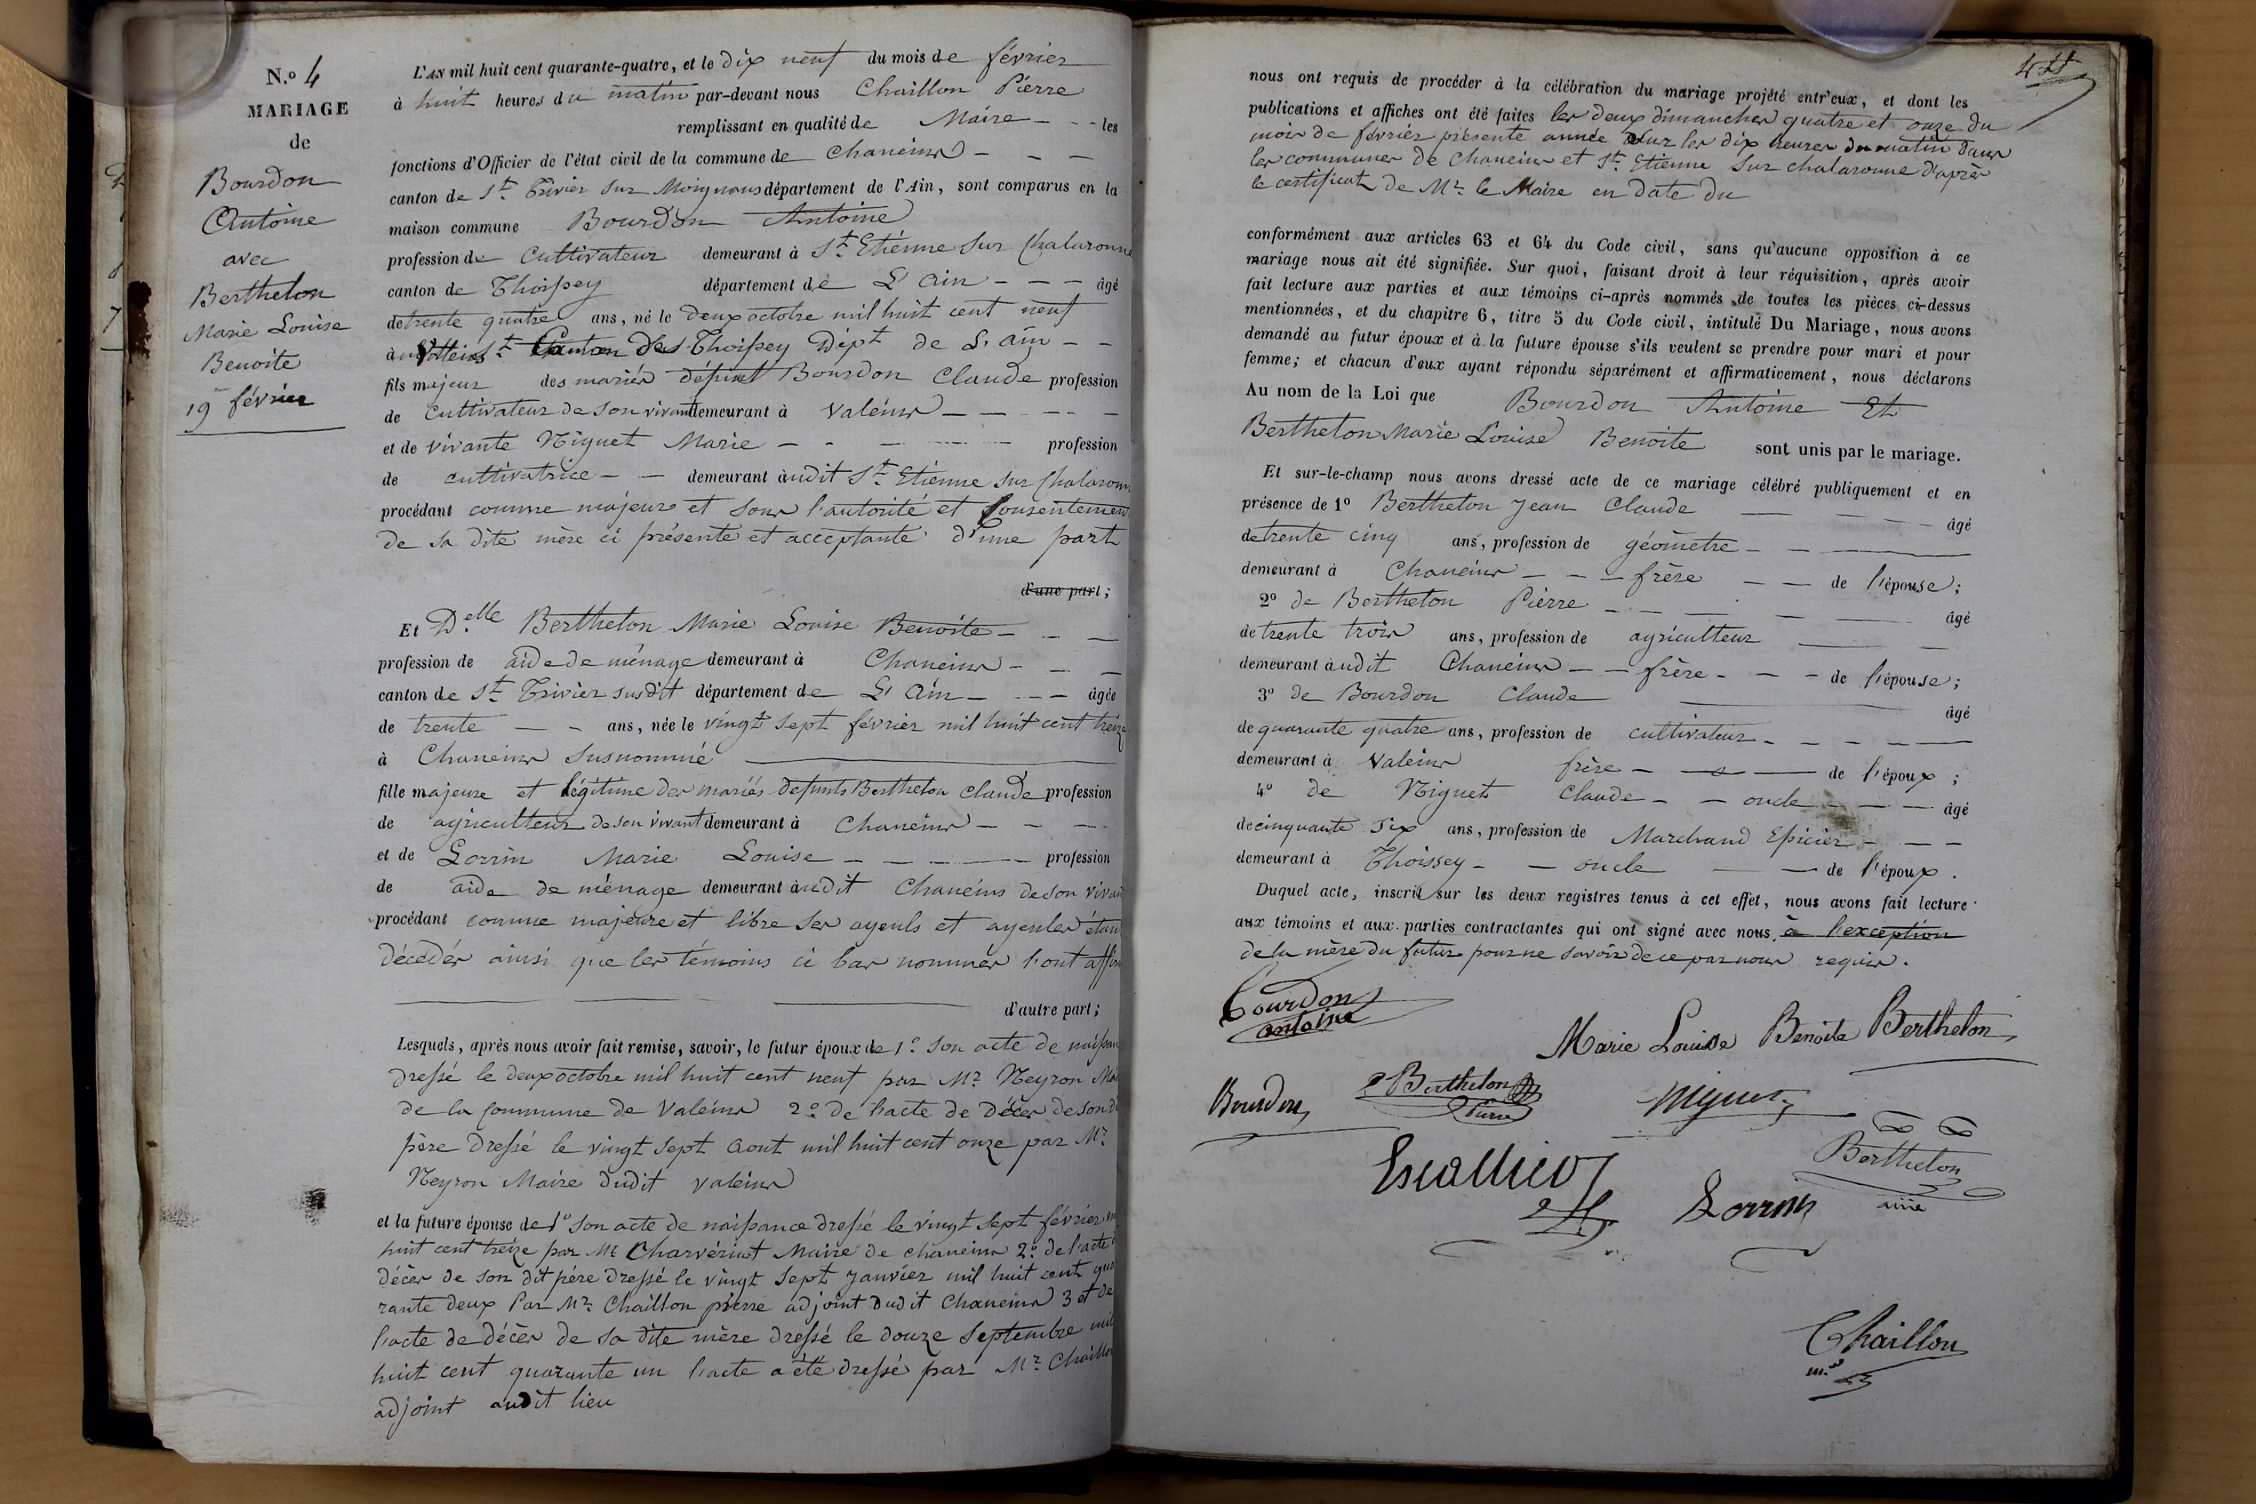 N.º 4
MARIAGE
de
Bourdon
Antoine
avec
Berthelon
Marie Louise
Benoite
19 février
L'AN mil huit cent quarante-quatre, et le dix neuf du mois de février
à huit heures du matin par-devant nous Chaillon Pierre
remplissant en qualité de Maire - - - les
fonctions d'Officier de l'état civil de la commune de Chaneins - - -
canton de St. Trivier sur Moignans département de l'Ain, sont comparus en la
maison commune Bourdon Antoine
profession de cultivateur demeurant à St. Etienne sur Chalaronne
canton de Thoissey département de L'ain - - - âgé
de trente quatre ans, né le deux octobre mil huit cent neuf
à Canton de Thoissey Dépt de L'ain - -
fils majeur des mariés défunt Bourdon Claude profession
de cultivateur de son vivant demeurant à Valeins - - - -
et de vivante Niguet Marie - - - profession
de cultivatrice - - demeurant audit St. Etienne sur Chalaronne
procédant comme majeur et sous l'autorité et consentement
de sa dite mère ci présente et acceptante d'une part
d'une part;
Et Delle Berthelon Marie Louise Benoite - - -
profession de aide de ménage demeurant à Chaneins - - -
canton de St. Trivier susdit département de L'ain - - - âgée
de trente - - ans, née le vingt sept février mil huit cent treize
à Chaneins susnommé
fille majeure et légitime des mariés défunts Berthelon Claude profession
de agriculteur de son vivant demeurant à Chaneins - - -
et de Lorrin Marie Louise - - - profession
de aide de ménage demeurant audit Chaneins de son vivant
procédant comme majeure et libre ses ayeuls et ayeules étant
décédés ainsi que les témoins ci bas nommés l'ont
d'autre part;
Lesquels, après nous avoir fait remise, savoir, le futur époux de 1.º son acte de naissance
dressé le deux octobre mil huit cent neuf par Mr. Neyron
de la commune de Valeins 2.º de l'acte de décès de son
père dressé le vingt sept aout mil huit cent onze par Mr.
Neyron Maire dudit valeins
et la future épouse de 1º son acte de naissance dressé le vingt sept février
huit cent treize par Mr Charvériat Maire de chaneins 2.º de l'acte
décès de son dit père dressé le vingt sept janvier mil huit cent qua
rante deux Par Mr. Chaillon pierre adjoint dudit Chaneins 3 et de
l'acte de décès de sa dite mère dressé le douze septembre mil
huit cent quarante un l'acte a été dressé par Mr. Chaillon
adjoint audit lieu
nous ont requis de procéder à la célébration du mariage projeté entr'eux, et dont les
publications et affiches ont été faites les deux dimanches quatre et onze du
mois de février présente année sur les dix heures du matin dans
les communes de Chaneins et St. Etienne sur chalaronne d'après
le certificat de Mr. le Maire en date du
conformément aux articles 63 et 64 du Code civil, sans qu'aucune opposition à ce
mariage nous ait été signifiée. Sur quoi, faisant droit à leur réquisition, après avoir
fait lecture aux parties et aux témoins ci-après nommés de toutes les pièces ci-dessus
mentionnées, et du chapitre 6, titre 5 du Code civil, intitulé Du Mariage, nous avons
demandé au futur époux et à la future épouse s'ils veulent se prendre pour mari et pour
femme; et chacun d'eux ayant répondu séparément et affirmativement, nous déclarons
Au nom de la Loi que Bourdon Antoine Et
Berthelon Marie Louise Benoite sont unis par le mariage.
Et sur-le-champ nous avons dressé acte de ce mariage célébré publiquement et en
présence de 1º Berthelon Jean Claude - - - âgé
de trente cinq ans, profession de géometre - -
demeurant à Chaneins - - - frère - - de l'épouse;
2º de Berthelon Pierre - - - âgé
de trente trois ans, profession de agriculteur
demeurant audit Chaneins - - frère - - - de l'épouse;
3º de Bourdon Claude âgé
de quarante quatre ans, profession de cultivateur - - - -
demeurant à Valeins frère - - - de l'époux;
4º de Niguet Claude - - oncle - - - âgé
de cinquante six ans, profession de Marchand Epicier - - -
demeurant à Thoissey - - oncle - de l'époux.
Duquel acte, inscrit sur les deux registres tenus à cet effet, nous avons fait lecture
aux témoins et aux parties contractantes qui ont signé avec nous, à l'exception
de la mère du futur pour ne savoir de ce par nous requis.
Bourdon
antoine
Marie Louise Benoite Berthelon
Bourdon
Berthelon
Pierre
Niguet
Berthelon
ainé
Escallier
Lorrin
Chaillon